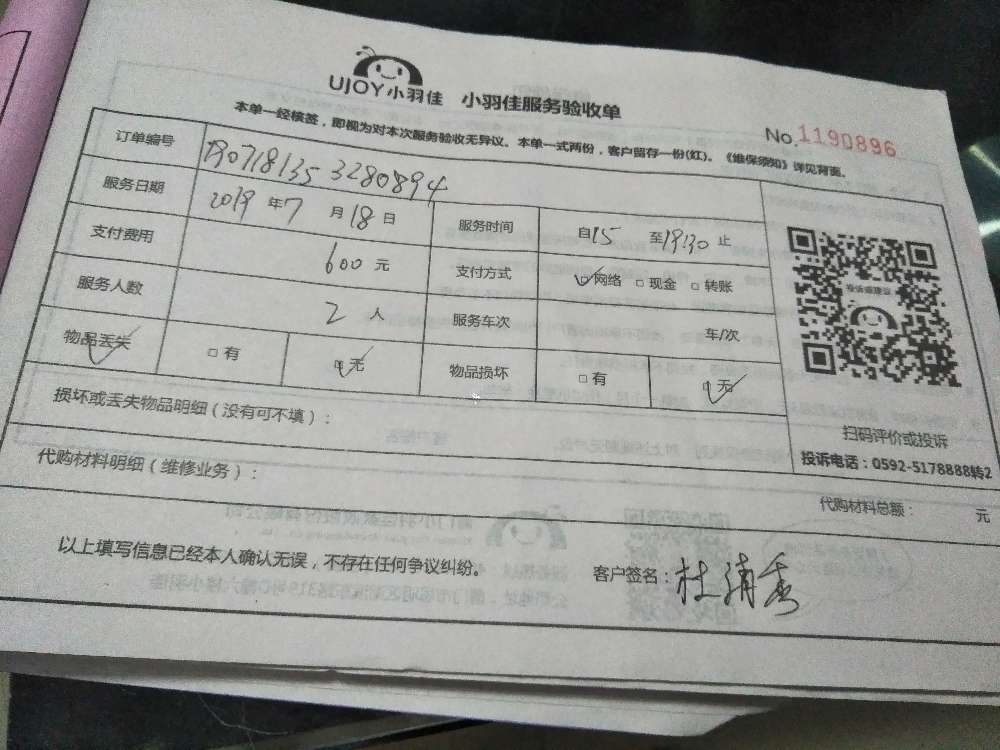 UJOY小羽佳 小羽佳服务验收单
No.1190896
本单一经核签，即视为对本次服务验收无异议。本单一式两份，客户留存一份(红)。《维保须知》详见背面。
订单编号 190718135 3280894
服务日期 2019 年 7 月 18 日 服务时间 自 15 至 19:30 止
支付费用 600 元 支付方式 网络 □ 现金 □ 转账
服务人数 2 人 服务车次 车/次
物品丢失 □ 有 □ 无 物品损坏 □ 有 □ 无
损坏或丢失物品明细（没有可不填）：
扫码评价或投诉
投诉电话：0592-5178888转2
代购材料明细（维修业务）：
代购材料总额： 元
以上填写信息已经本人确认无误，不存在任何争议纠纷。
客户签名：杜